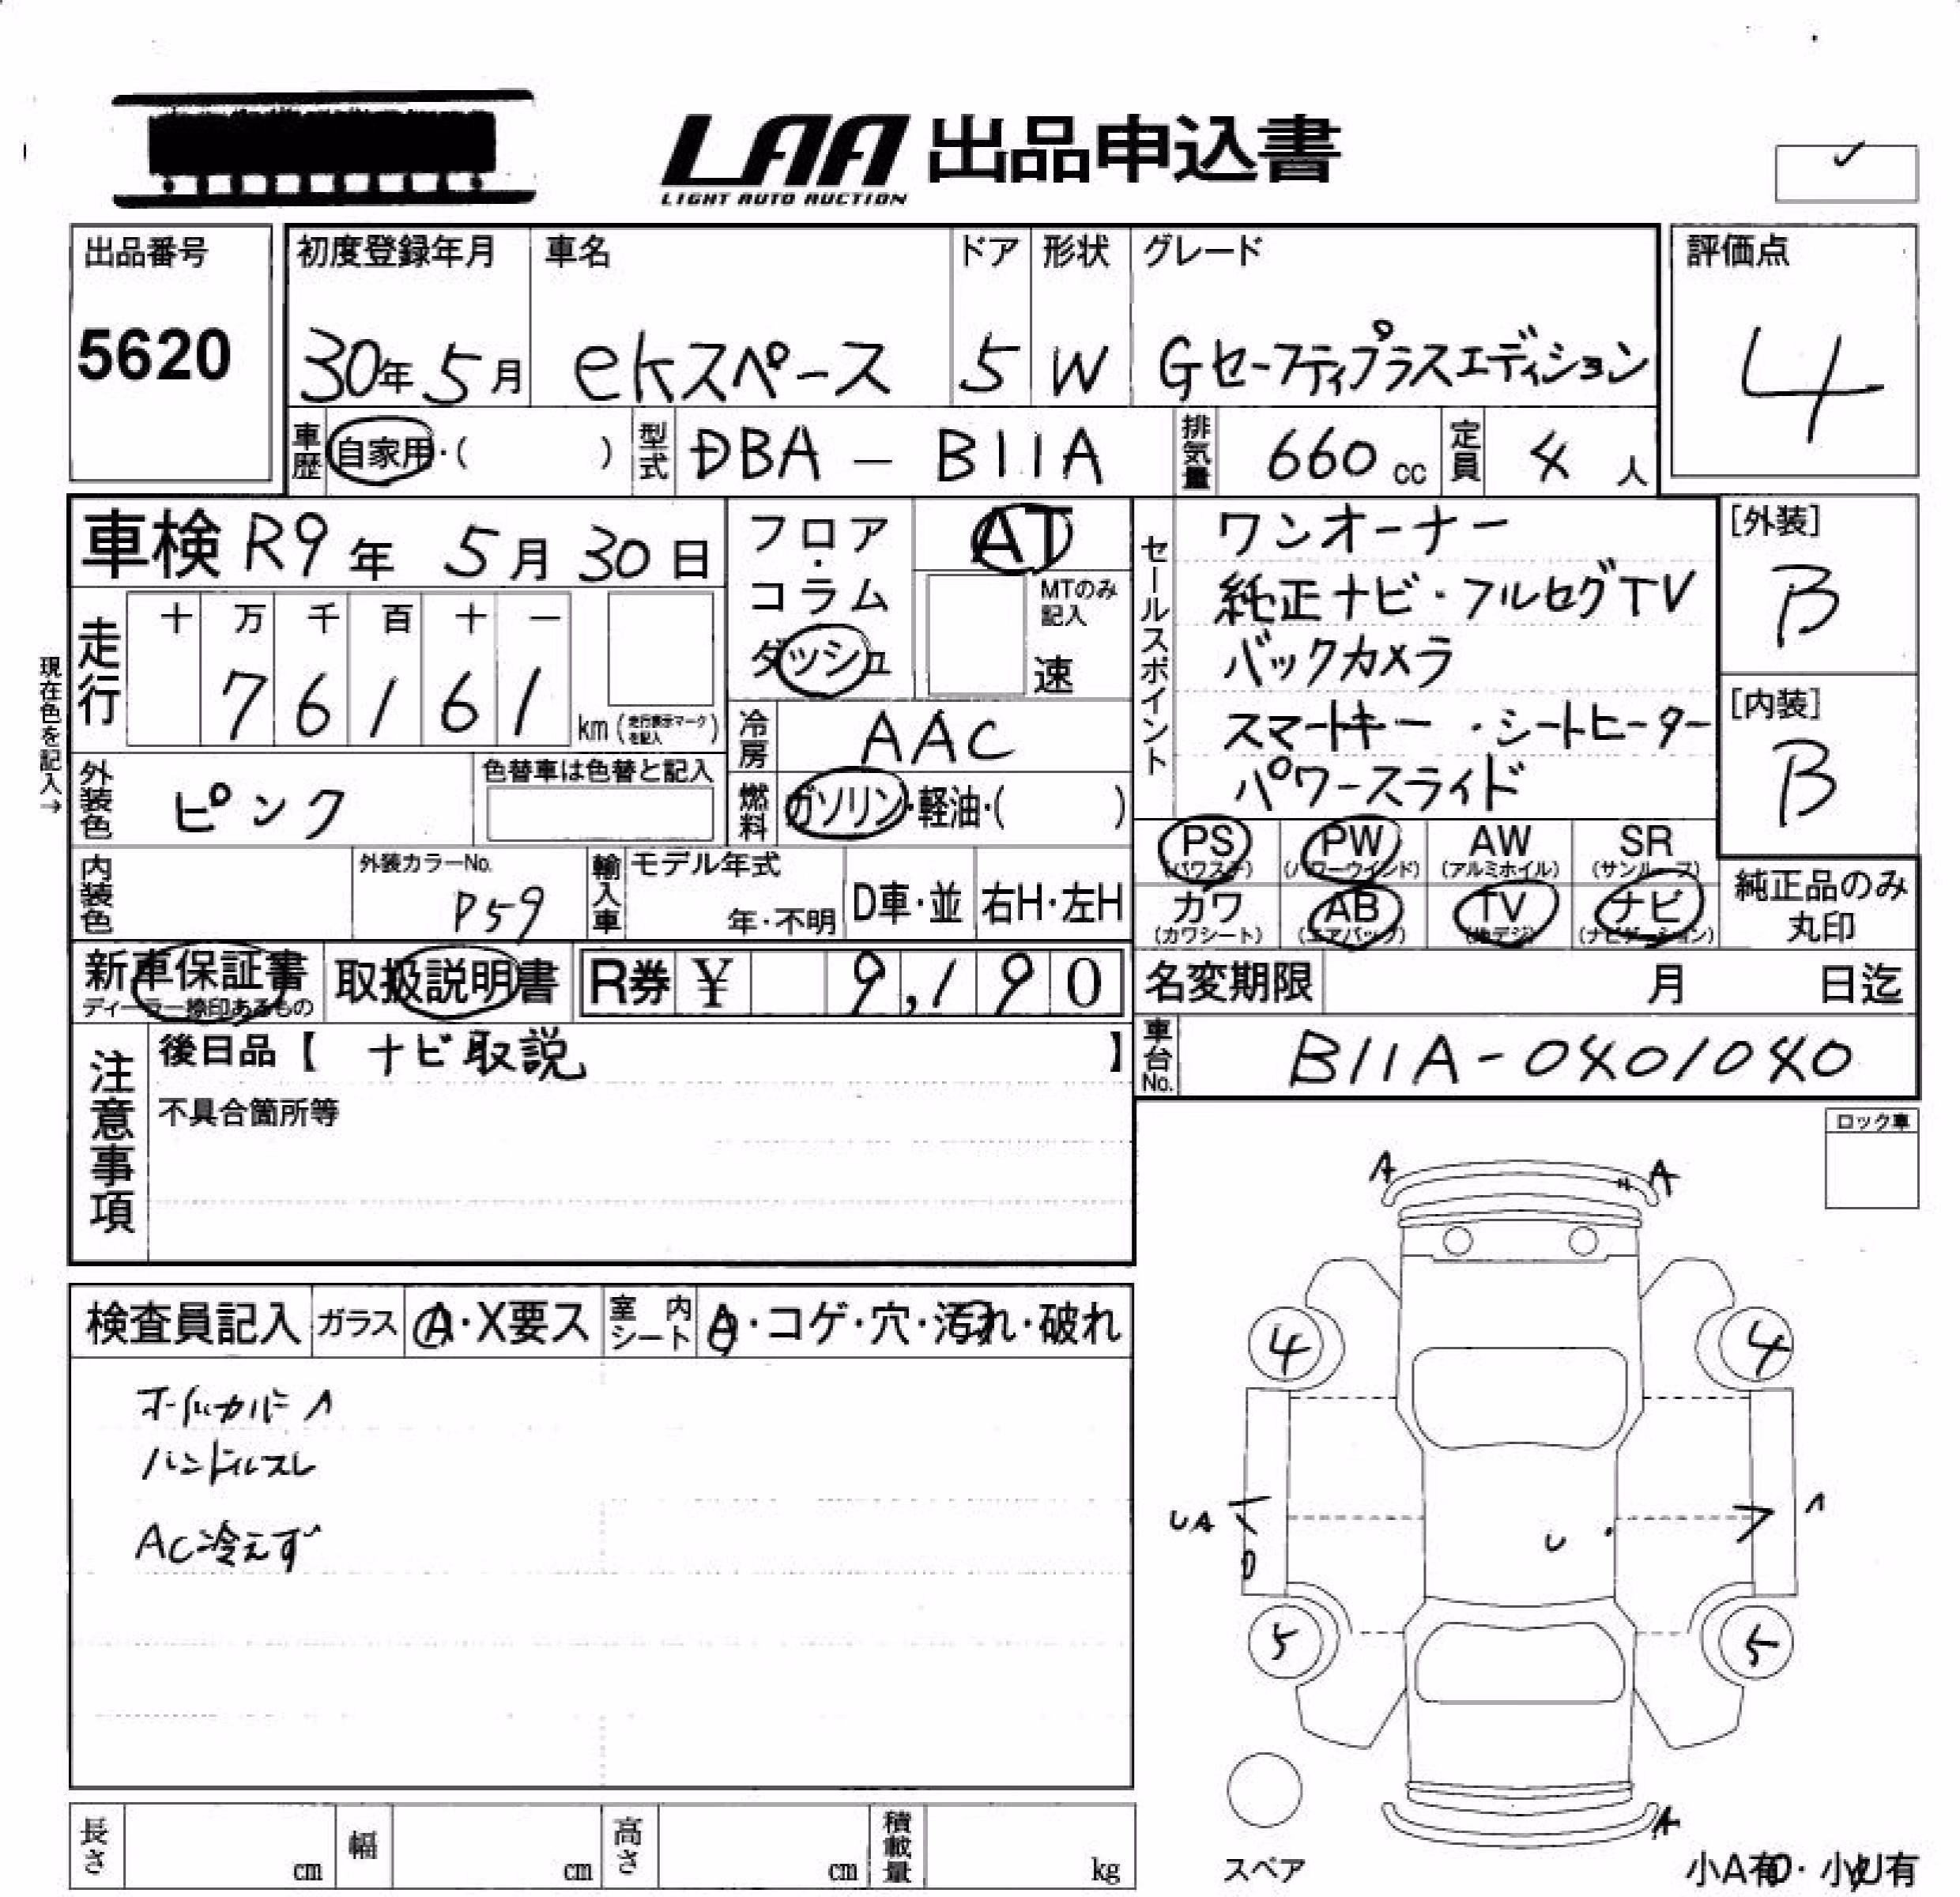 LAA 出品申込書
LIGHT AUTO AUCTION
✓
出品番号
5620
初度登録年月
30年5月
車名
ekスペース
ドア
5
形状
W
グレード
Gセーフティプラスエディション
評価点
4
車歴 自家用・( )
型式 DBA - B11A
排気量 660 cc
定員 4 人
車検 R9年 5月 30日
フロア・コラム
ダッシュ
AT
MTのみ記入
速
セールスポイント
ワンオーナー
純正ナビ・フルセグTV
バックカメラ
スマートキー・シートヒーター
パワースライド
[外装]
B
[内装]
B
現在色を記入→
走行
十 万 千 百 十 一
7 6 1 6 1
km (走行表示マークを記入)
冷房 AAC
外装色 ピンク
色替車は色替と記入
燃料 ガソリン・軽油・( )
PS (パワステ)
PW (パワーウインド)
AW (アルミホイル)
SR (サンルーフ)
カワ (カワシート)
AB (エアバック)
TV (地デジ)
ナビ (ナビゲーション)
純正品のみ丸印
内装色
外装カラーNo.
P59
輸入車
モデル年式
年・不明
D車・並
右H・左H
新車保証書
ディーラー捺印あるもの
取扱説明書
R券 ¥ 9,190
名変期限 月 日迄
車台No. B11A-0401040
注意事項
後日品【 ナビ取説 】
不具合箇所等
ロック車
A A
検査員記入
ガラス A・X要ス
室内シート A・コゲ・穴・汚れ・破れ
ハンドルスレ
AC冷えず
4 4
UA
U
5 5
スペア
A
小A有・小U有
長さ cm
幅 cm
高さ cm
積載量 kg